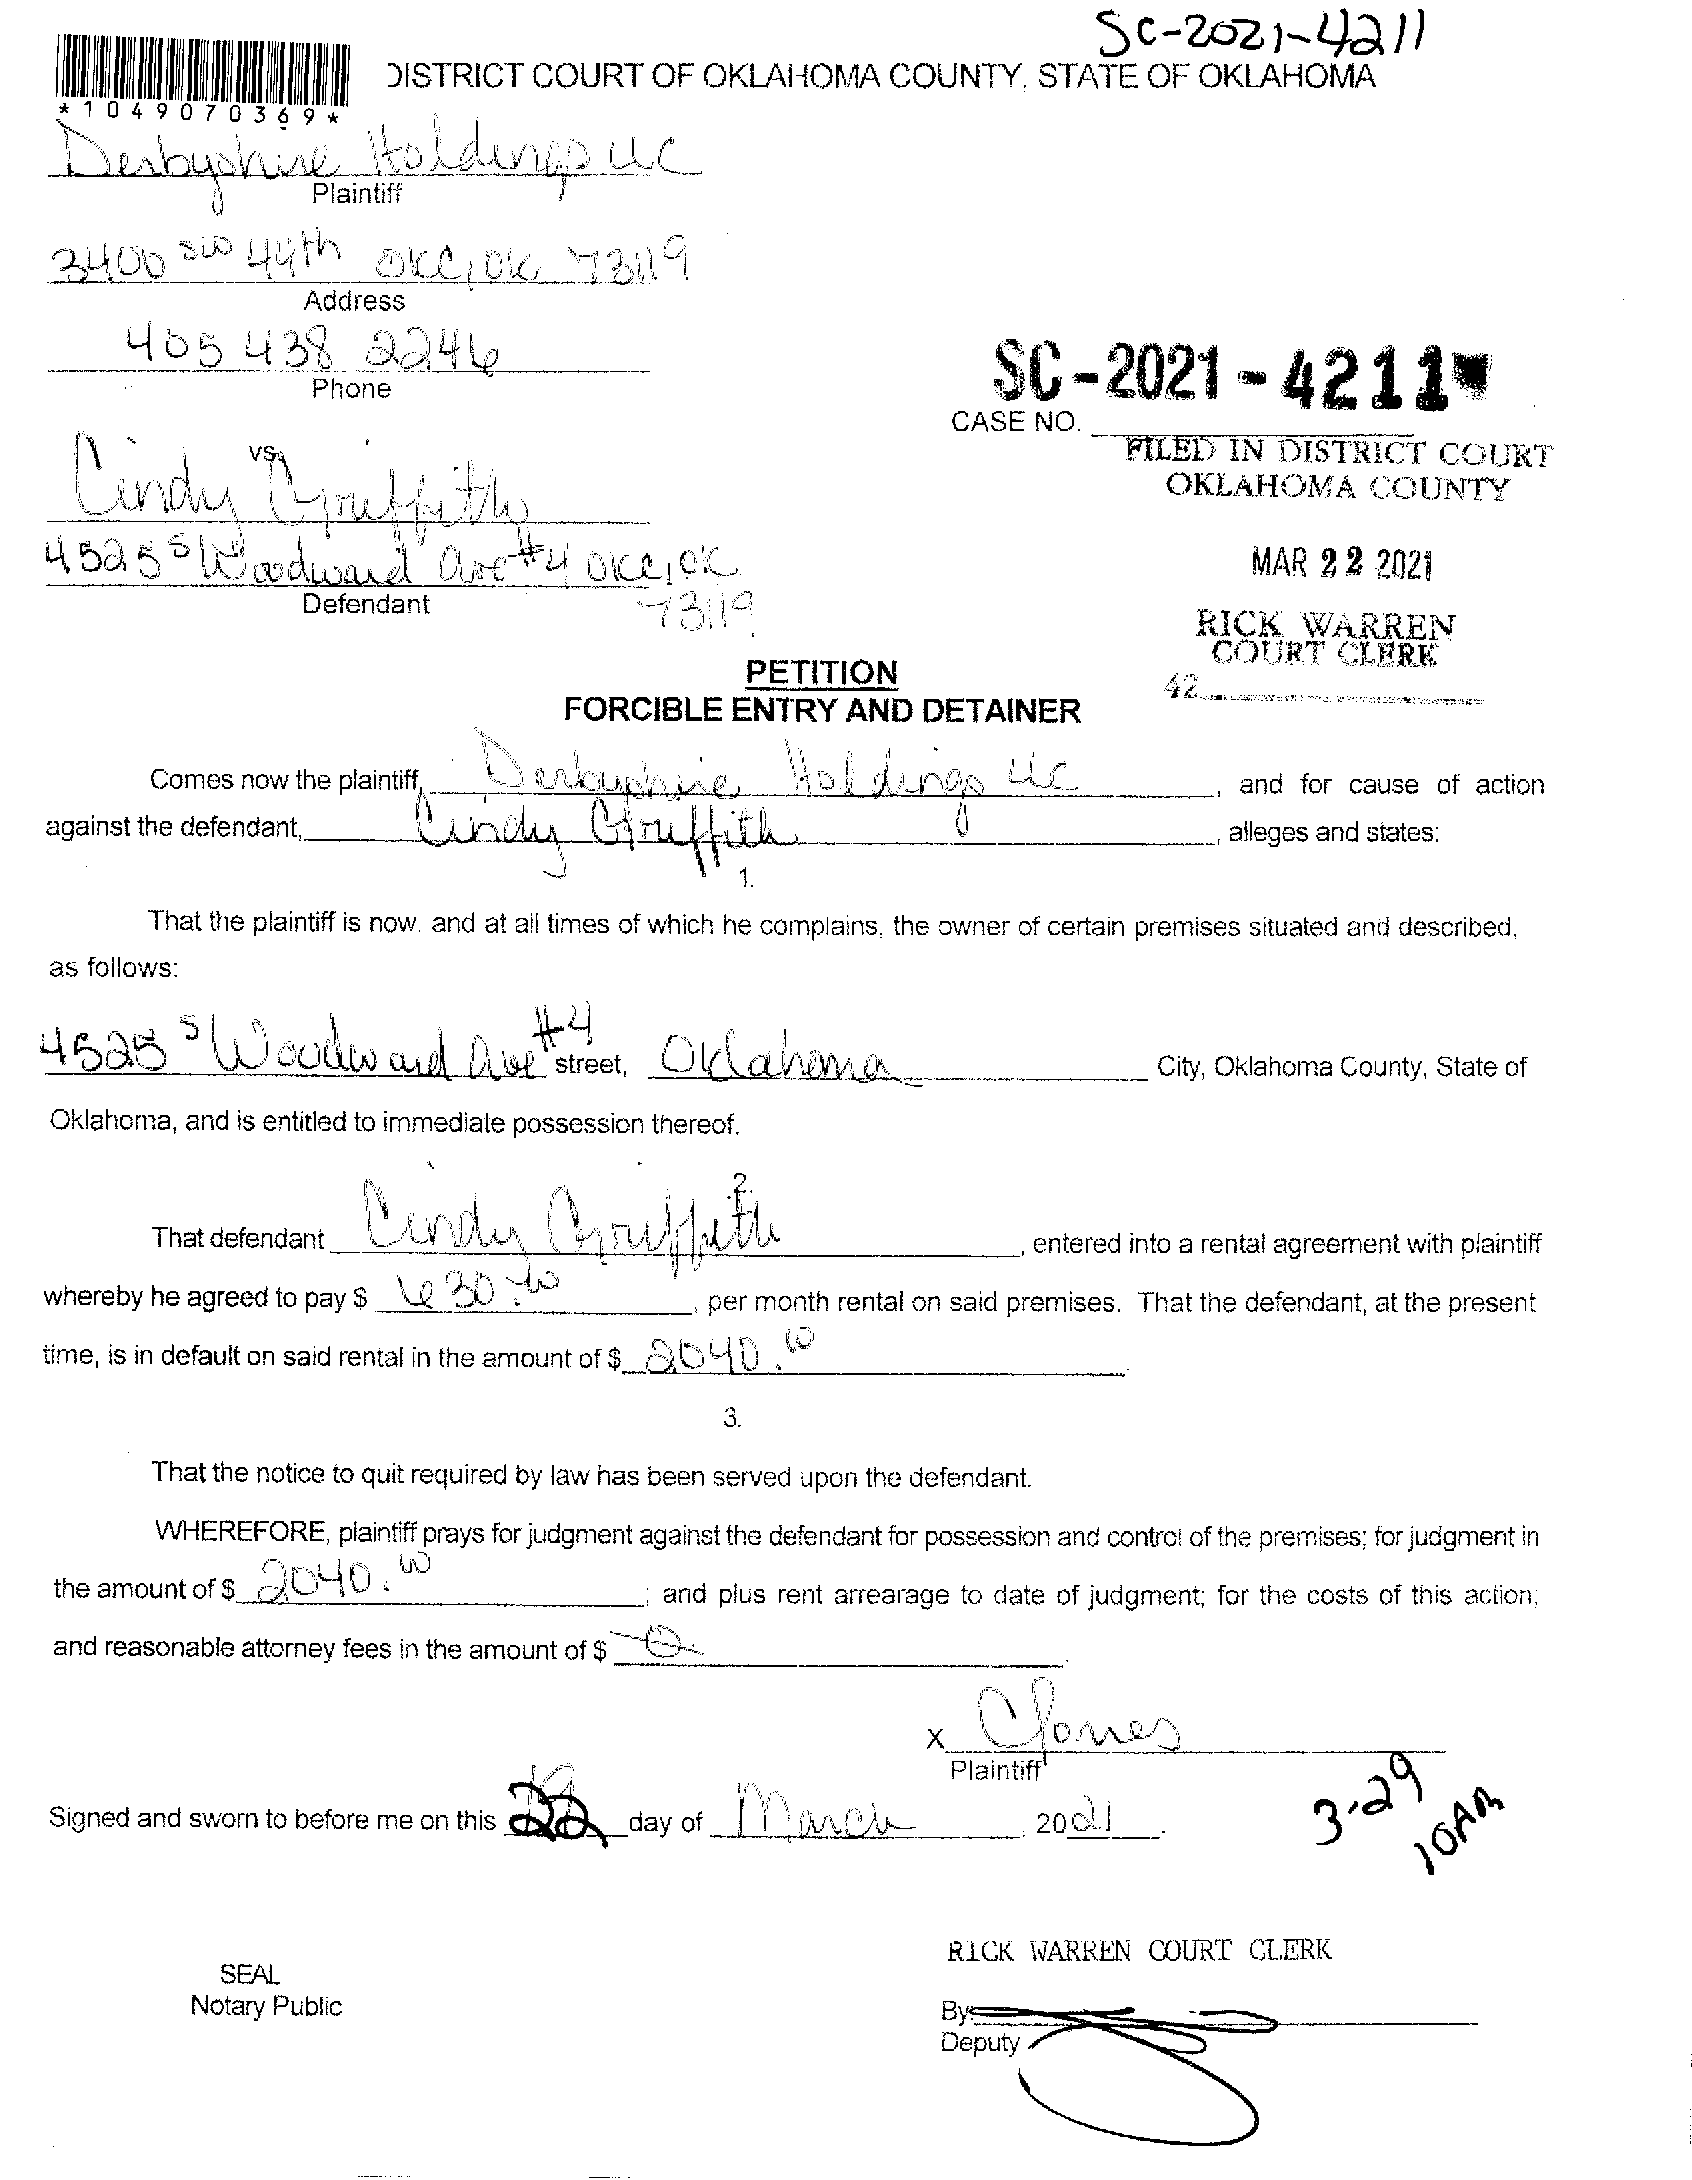 SC-2021-4211
DISTRICT COURT OF OKLAHOMA COUNTY, STATE OF OKLAHOMA
*1049070369*
Derbyshire Holdings LLC
Plaintiff
3400 SW 44th OKC, OK 73119
Address
405 438 2246
Phone
SC-2021-4211
CASE NO.
FILED IN DISTRICT COURT
OKLAHOMA COUNTY
vs.
Cindy Griffith
4525 S Woodward Ave #4 OKC, OK
73119
Defendant
MAR 22 2021
RICK WARREN
COURT CLERK
42
PETITION
FORCIBLE ENTRY AND DETAINER
Comes now the plaintiff, Derbyshire Holdings LLC, and for cause of action
against the defendant, Cindy Griffith, alleges and states:
1.
That the plaintiff is now, and at all times of which he complains, the owner of certain premises situated and described,
as follows:
4525 S Woodward Ave #4 street, Oklahoma City, Oklahoma County, State of
Oklahoma, and is entitled to immediate possession thereof.
2.
That defendant Cindy Griffith, entered into a rental agreement with plaintiff
whereby he agreed to pay $ 630.00, per month rental on said premises. That the defendant, at the present
time, is in default on said rental in the amount of $ 2040.00.
3.
That the notice to quit required by law has been served upon the defendant.
WHEREFORE, plaintiff prays for judgment against the defendant for possession and control of the premises; for judgment in
the amount of $ 2040.00; and plus rent arrearage to date of judgment; for the costs of this action;
and reasonable attorney fees in the amount of $ 0.
X CJones
Plaintiff
Signed and sworn to before me on this 22 day of March, 2021.
3-29
10AM
RICK WARREN COURT CLERK
SEAL
Notary Public
By:
Deputy